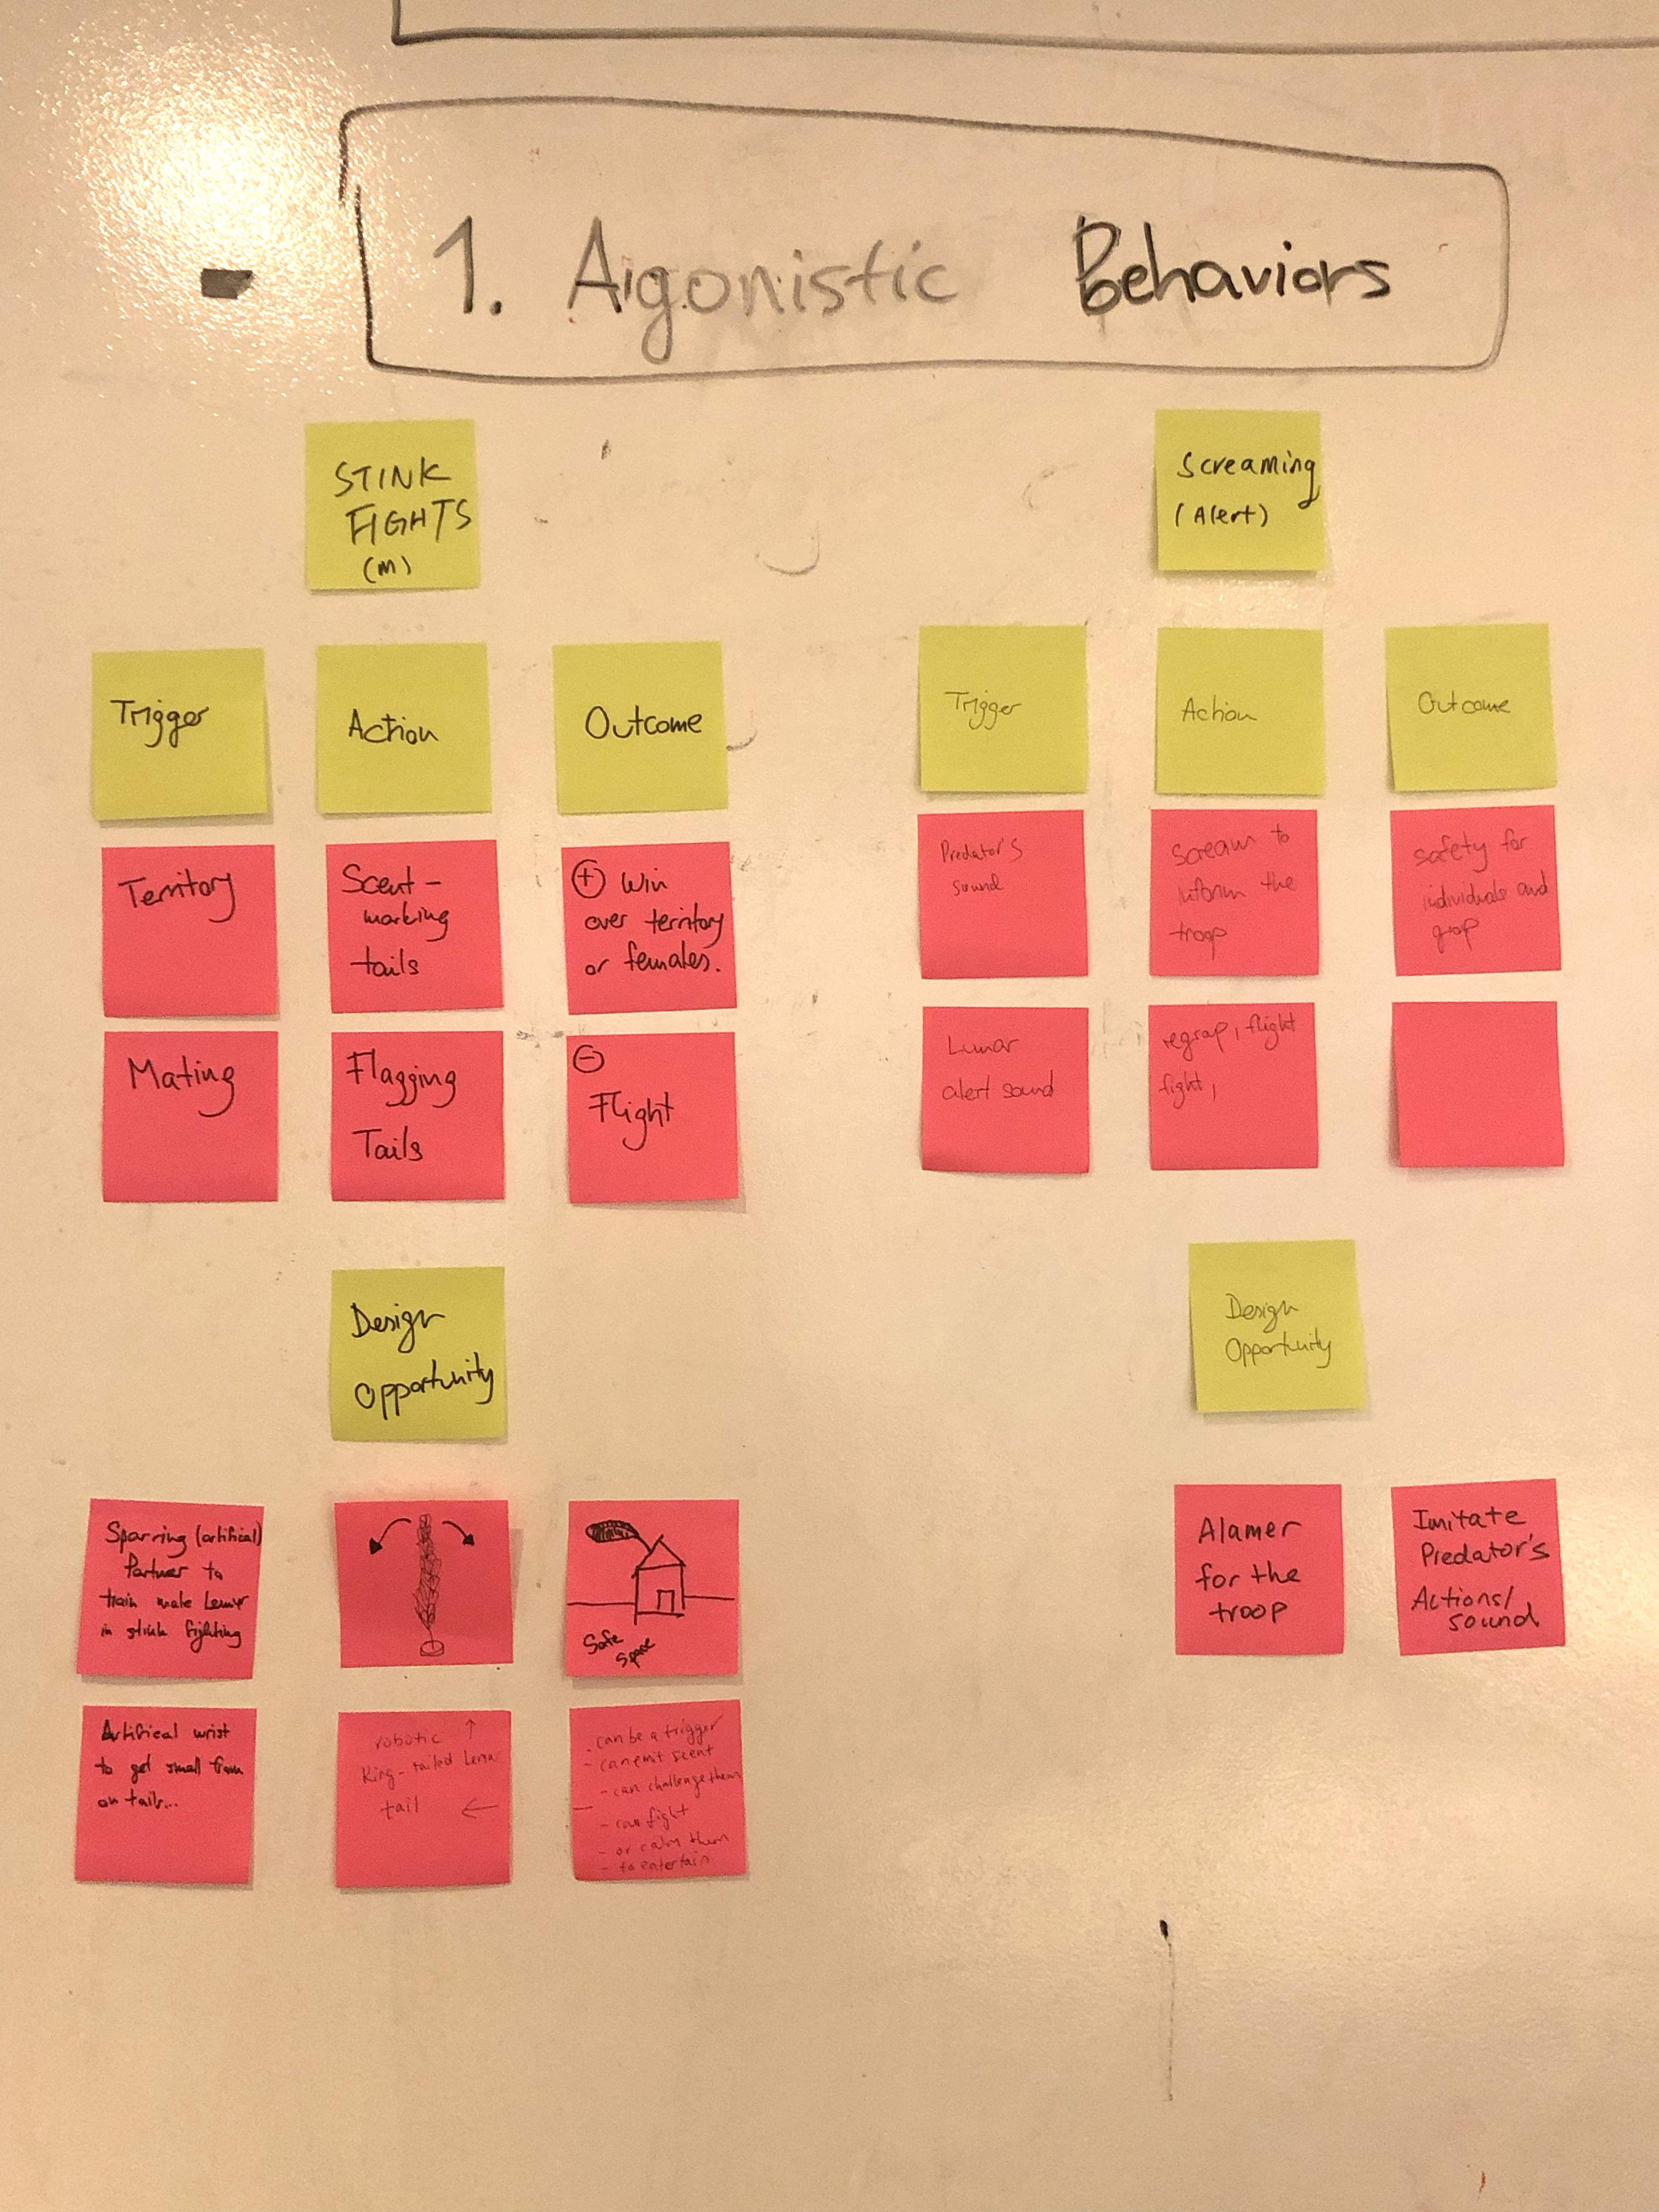 1. Agonistic Behaviors
STINK
FIGHTS
(M)
Trigger
Action
Outcome
Territory
Scent-
marking
tails
+ Win
over territory
or females.
Mating
Flagging
Tails
-
Flight
Design
Opportunity
Sparring (artificial)
Partner to
train male Lemur
in stink fighting
Safe
Space
Artifical wrist
to get smell from
on tails...
robotic ↑
Ring-tailed Lemur
tail ←
- can be a trigger
- can emit scent
- can challenge them
- can fight
- or calm them
- to entertain
Screaming
(Alert)
Trigger
Action
Outcome
Predator's
sound
Scream to
inform the
troop
safety for
individuals and
grop
Lumar
alert sound
regrop, flight
fight,
Design
Opportunity
Alamer
for the
troop
Imitate
Predator's
Actions/
sound